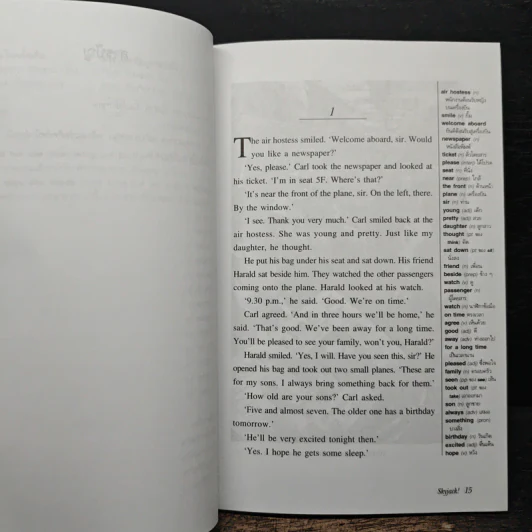 1
The air hostess smiled. 'Welcome aboard, sir. Would
you like a newspaper?'
'Yes, please.' Carl took the newspaper and looked at
his ticket. 'I'm in seat 5F. Where's that?'
'It's near the front of the plane, sir. On the left, there.
By the window.'
'I see. Thank you very much.' Carl smiled back at the
air hostess. She was young and pretty. Just like my
daughter, he thought.
He put his bag under his seat and sat down. His friend
Harald sat beside him. They watched the other passengers
coming onto the plane. Harald looked at his watch.
'9.30 p.m.,' he said. 'Good. We're on time.'
Carl agreed. 'And in three hours we'll be home,' he
said. 'That's good. We've been away for a long time.
You'll be pleased to see your family, won't you, Harald?'
Harald smiled. 'Yes, I will. Have you seen this, sir?' He
opened his bag and took out two small planes. 'These are
for my sons. I always bring something back for them.'
'How old are your sons?' Carl asked.
'Five and almost seven. The older one has a birthday
tomorrow.'
'He'll be very excited tonight then.'
'Yes. I hope he gets some sleep.'
air hostess (n)
smile (v) ยิ้ม
welcome aboard
newspaper (n)
ticket (n)
please
seat (n) ที่นั่ง
near (prep) ใกล้
the front (n)
plane (n) เครื่องบิน
sir (n) ท่าน
young (adj)
pretty (adj) สวย
daughter (n) ลูกสาว
thought
sat down
friend (n) เพื่อน
beside (prep) ข้าง ๆ
watch (v) ดู
passenger (n)
ผู้โดยสาร
watch (n)
on time ตรงเวลา
agree (v) เห็นด้วย
good (adj) ดี
away (adv)
for a long time
เป็นเวลานาน
pleased (adj)
family (n) ครอบครัว
seen
look out
son (n) ลูกชาย
always (adv) เสมอ
something (pron)
บางสิ่ง
birthday (n) วันเกิด
excited (adj) ตื่นเต้น
hope (v) หวัง
Skyjack! 15